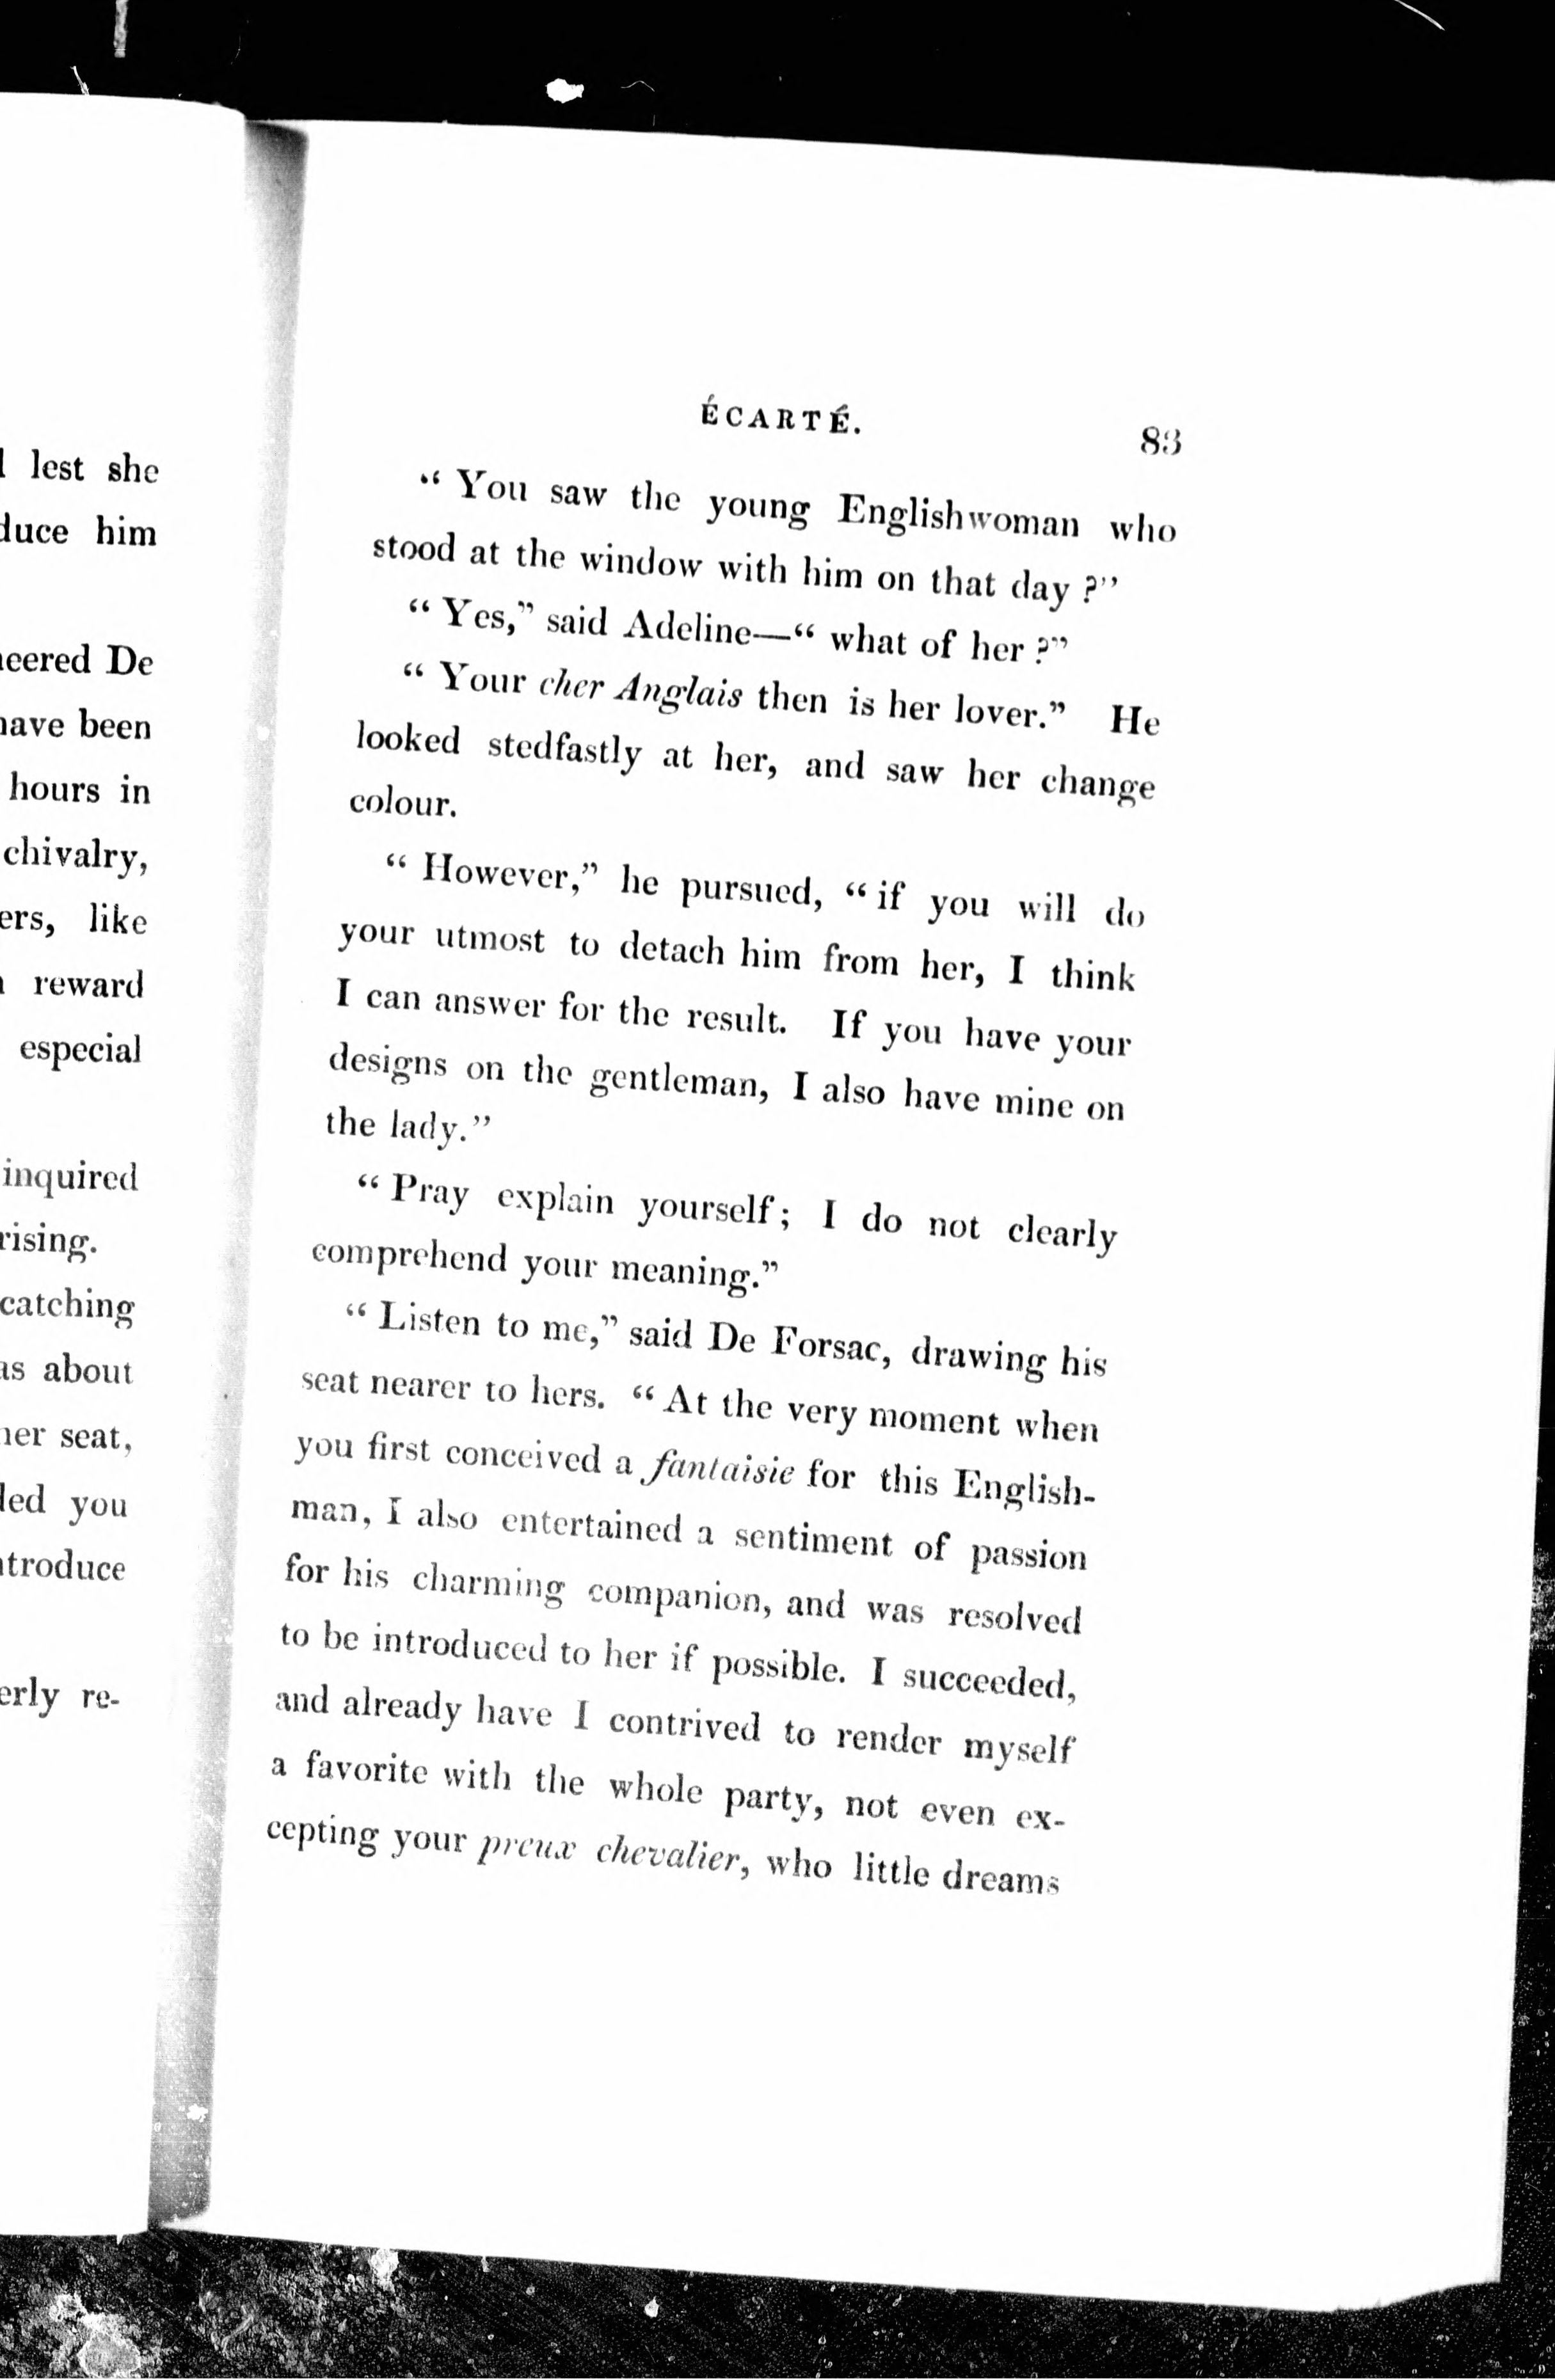 l lest she
duce him
neered De
have been
hours in
chivalry,
ers, like
reward
especial
inquired
rising.
catching
as about
her seat,
led you
ntroduce
erly re-
ÉCARTÉ.
83
“ You saw the young Englishwoman who
stood at the window with him on that day ?”
“ Yes,” said Adeline—“ what of her ?”
“ Your cher Anglais then is her lover.” He
looked stedfastly at her, and saw her change
colour.
“ However,” he pursued, “ if you will do
your utmost to detach him from her, I think
I can answer for the result. If you have your
designs on the gentleman, I also have mine on
the lady.”
“ Pray explain yourself ; I do not clearly
comprehend your meaning.”
“ Listen to me,” said De Forsac, drawing his
seat nearer to hers. “ At the very moment when
you first conceived a fantaisie for this English-
man, I also entertained a sentiment of passion
for his charming companion, and was resolved
to be introduced to her if possible. I succeeded,
and already have I contrived to render myself
a favorite with the whole party, not even ex-
cepting your preux chevalier, who little dreams